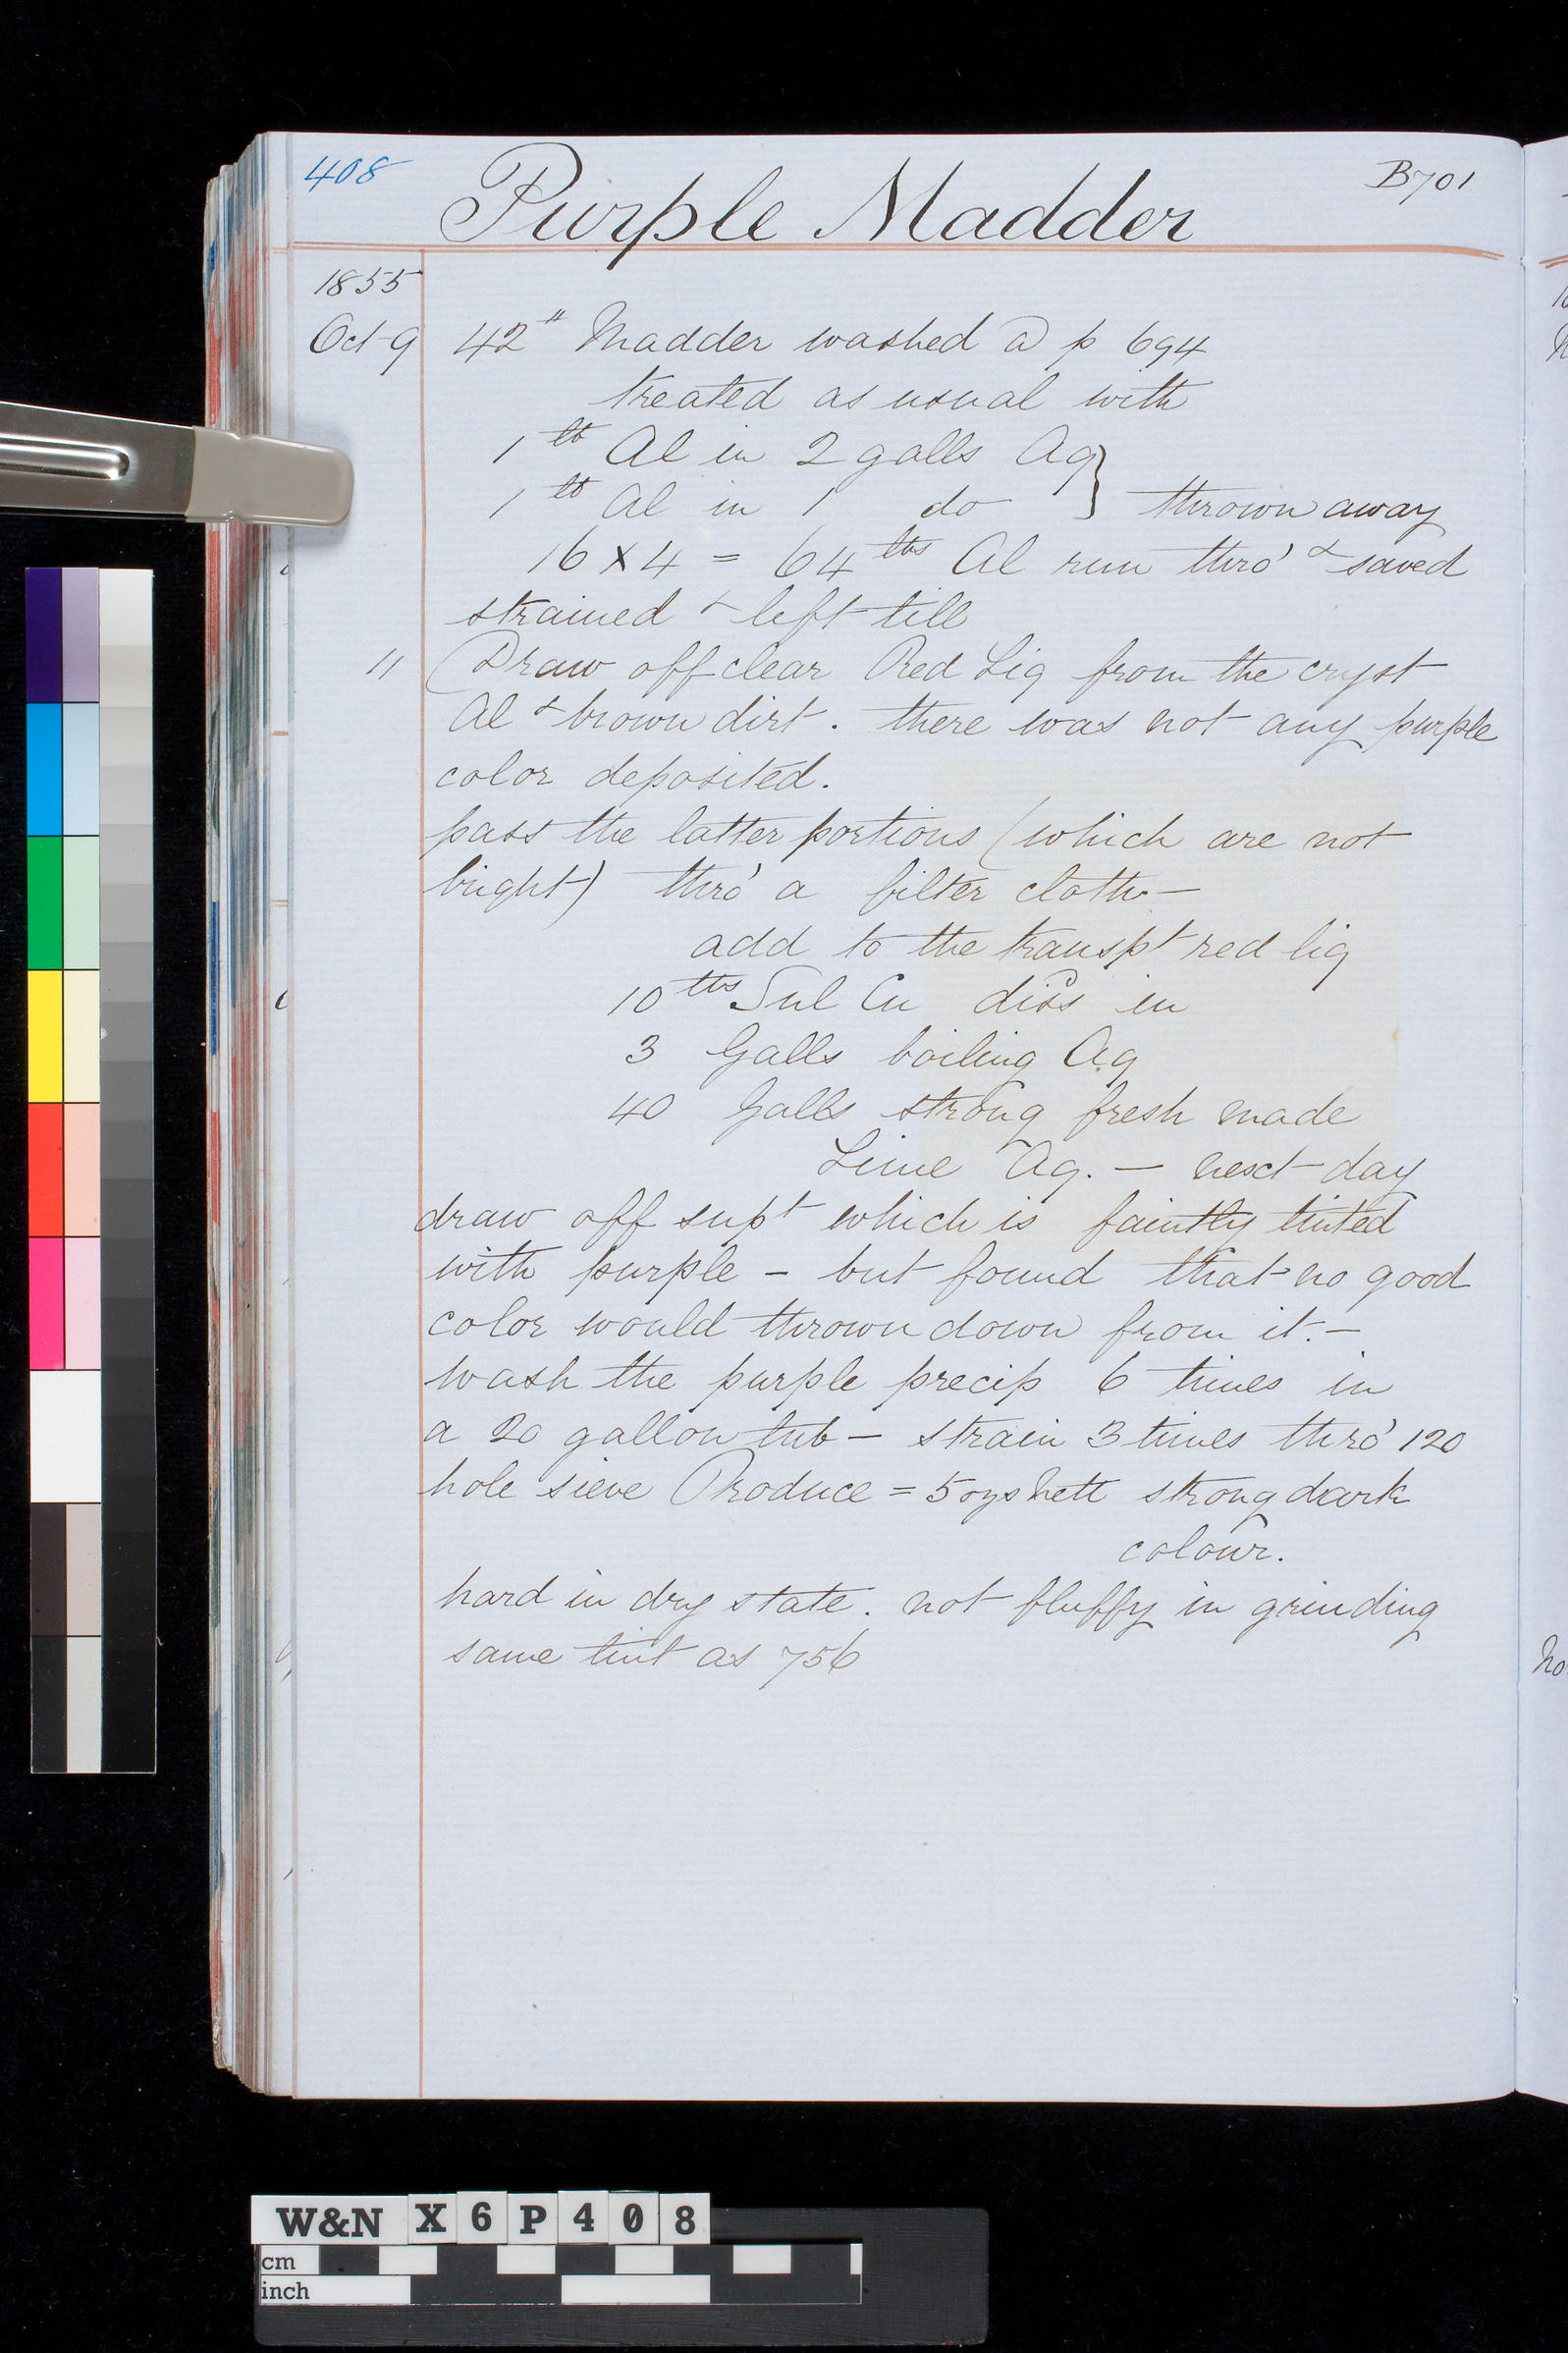 408
B701
Purple Madder
1855
Oct 9 42" Madder washed a p 694
treated as usual with
1 lb Al in 2 galls Aq
1 lb Al in 1 do } thrown away
16 x 4 = 64 lbs Al run thro' & saved
strained & left till
11 Draw off clear Red Liq from the cryst
Al & brown dirt. there was not any purple
color deposited.
pass the latter portions (which are not
bright) thro' a filter cloth —
add to the transpt red liq
10 lbs Sul Cu diss in
3 Galls boiling Aq
40 Galls strong fresh made
Lime Aq. — next day
draw off supt which is faintly tinted
with purple - but found that no good
color would thrown down from it. —
wash the purple precip 6 times in
a 20 gallon tub — strain 3 times thro' 120
hole sieve Produce = 5 ozs nett strong dark
colour.
hard in dry state. not fluffy in grinding
same tint as 756
No
W&N X6P408
cm
inch